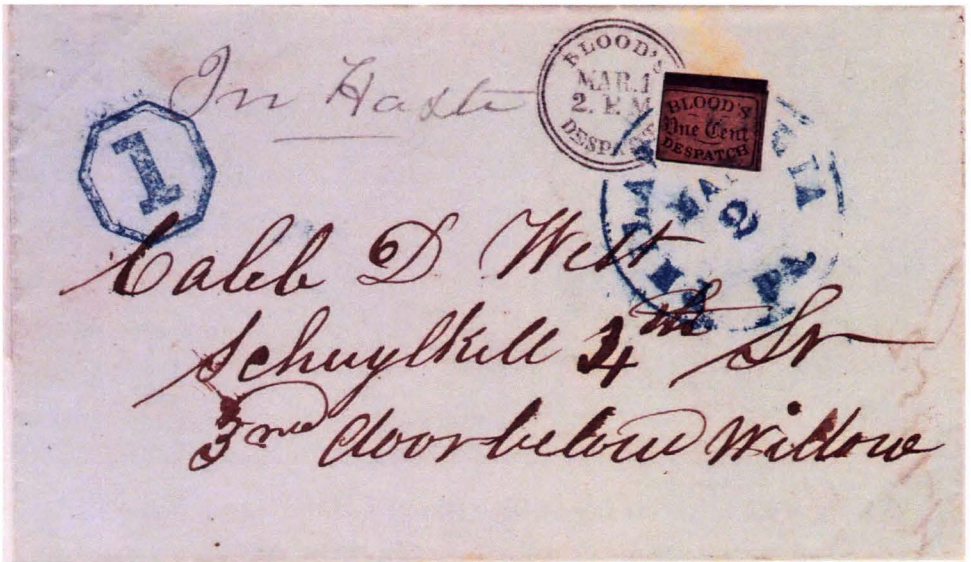 In Haste
BLOOD'S
MAR. 1
2. P.M
DESPATCH
BLOOD'S
One Cent
DESPATCH
1
2
Pa
Caleb D. Welt
Schuylkill 4th St
3rd door below Willow